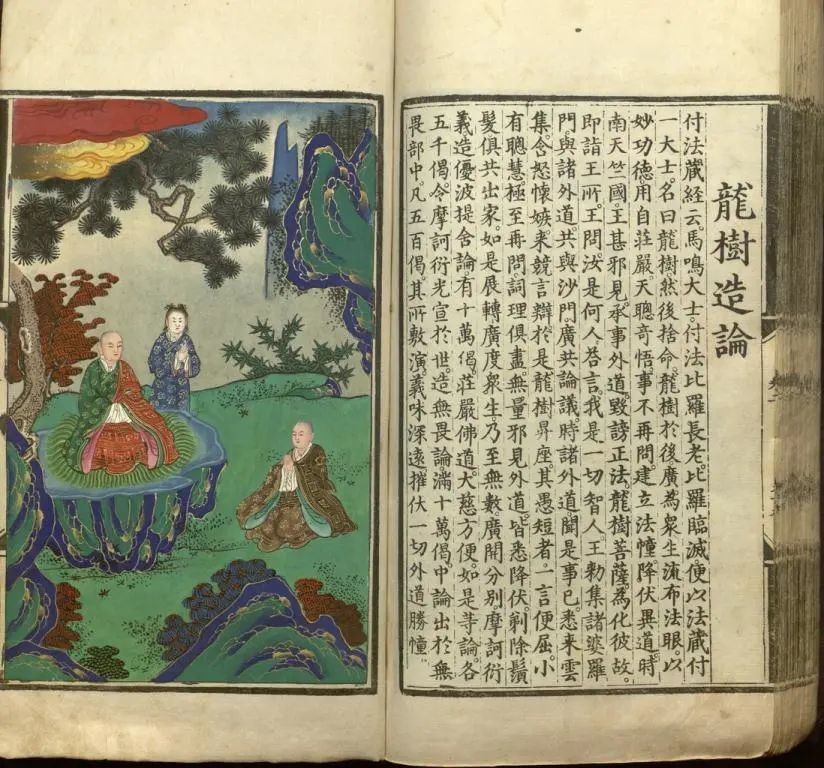 龍樹造論
付法藏經云。馬鳴大士。付法比羅長老。比羅臨滅。便以法藏付
一大士。名曰龍樹。然後捨命。龍樹於後廣為衆生流布法眼。以
妙功德用自莊嚴。天聰奇悟。事不再問。建立法幢。降伏異道。時
南天竺國。王甚邪見。承事外道。毀謗正法。龍樹菩薩。為化彼故。
即詣王所。王問汝是何人。荅言我是一切智人。王勑集諸婆羅
門。與諸外道。共與沙門。廣共論議。時諸外道。聞是事已。悉來雲
集。含怒懷嫉。來競言辯。於是龍樹昇座。其愚短者。一言便屈。小
有聰慧。極至再問。詞理俱盡。無量邪見外道。皆悉降伏。剃除鬚
髮。俱共出家。如是展轉廣度衆生。乃至無數。廣開分別摩訶衍
義。造優波提舍論。有十萬偈。莊嚴佛道。大慈方便。如是等論。各
五千偈。令摩訶衍光宣於世。造無畏論。滿十萬偈。中論出於無
畏部中。凡五百偈。其所敷演。義味深遠。摧伏一切外道勝幢。